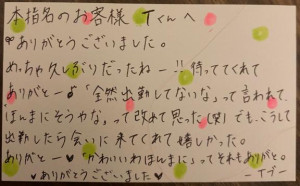 本指名のお客様 Tくんへ
♥ありがとうございました。
めっちゃ久しぶりだったねー!! 待っててくれて
ありがとー♪ 「全然出勤してないな」って言われて、
ほんまにそうやな。って改めて思った(笑) でも、こうして
出勤したら会いに来てくれて嬉しかった。
ありがとー♥ 「かわいいわほんまに」ってそれもありがと。
♥ありがとうございました♥